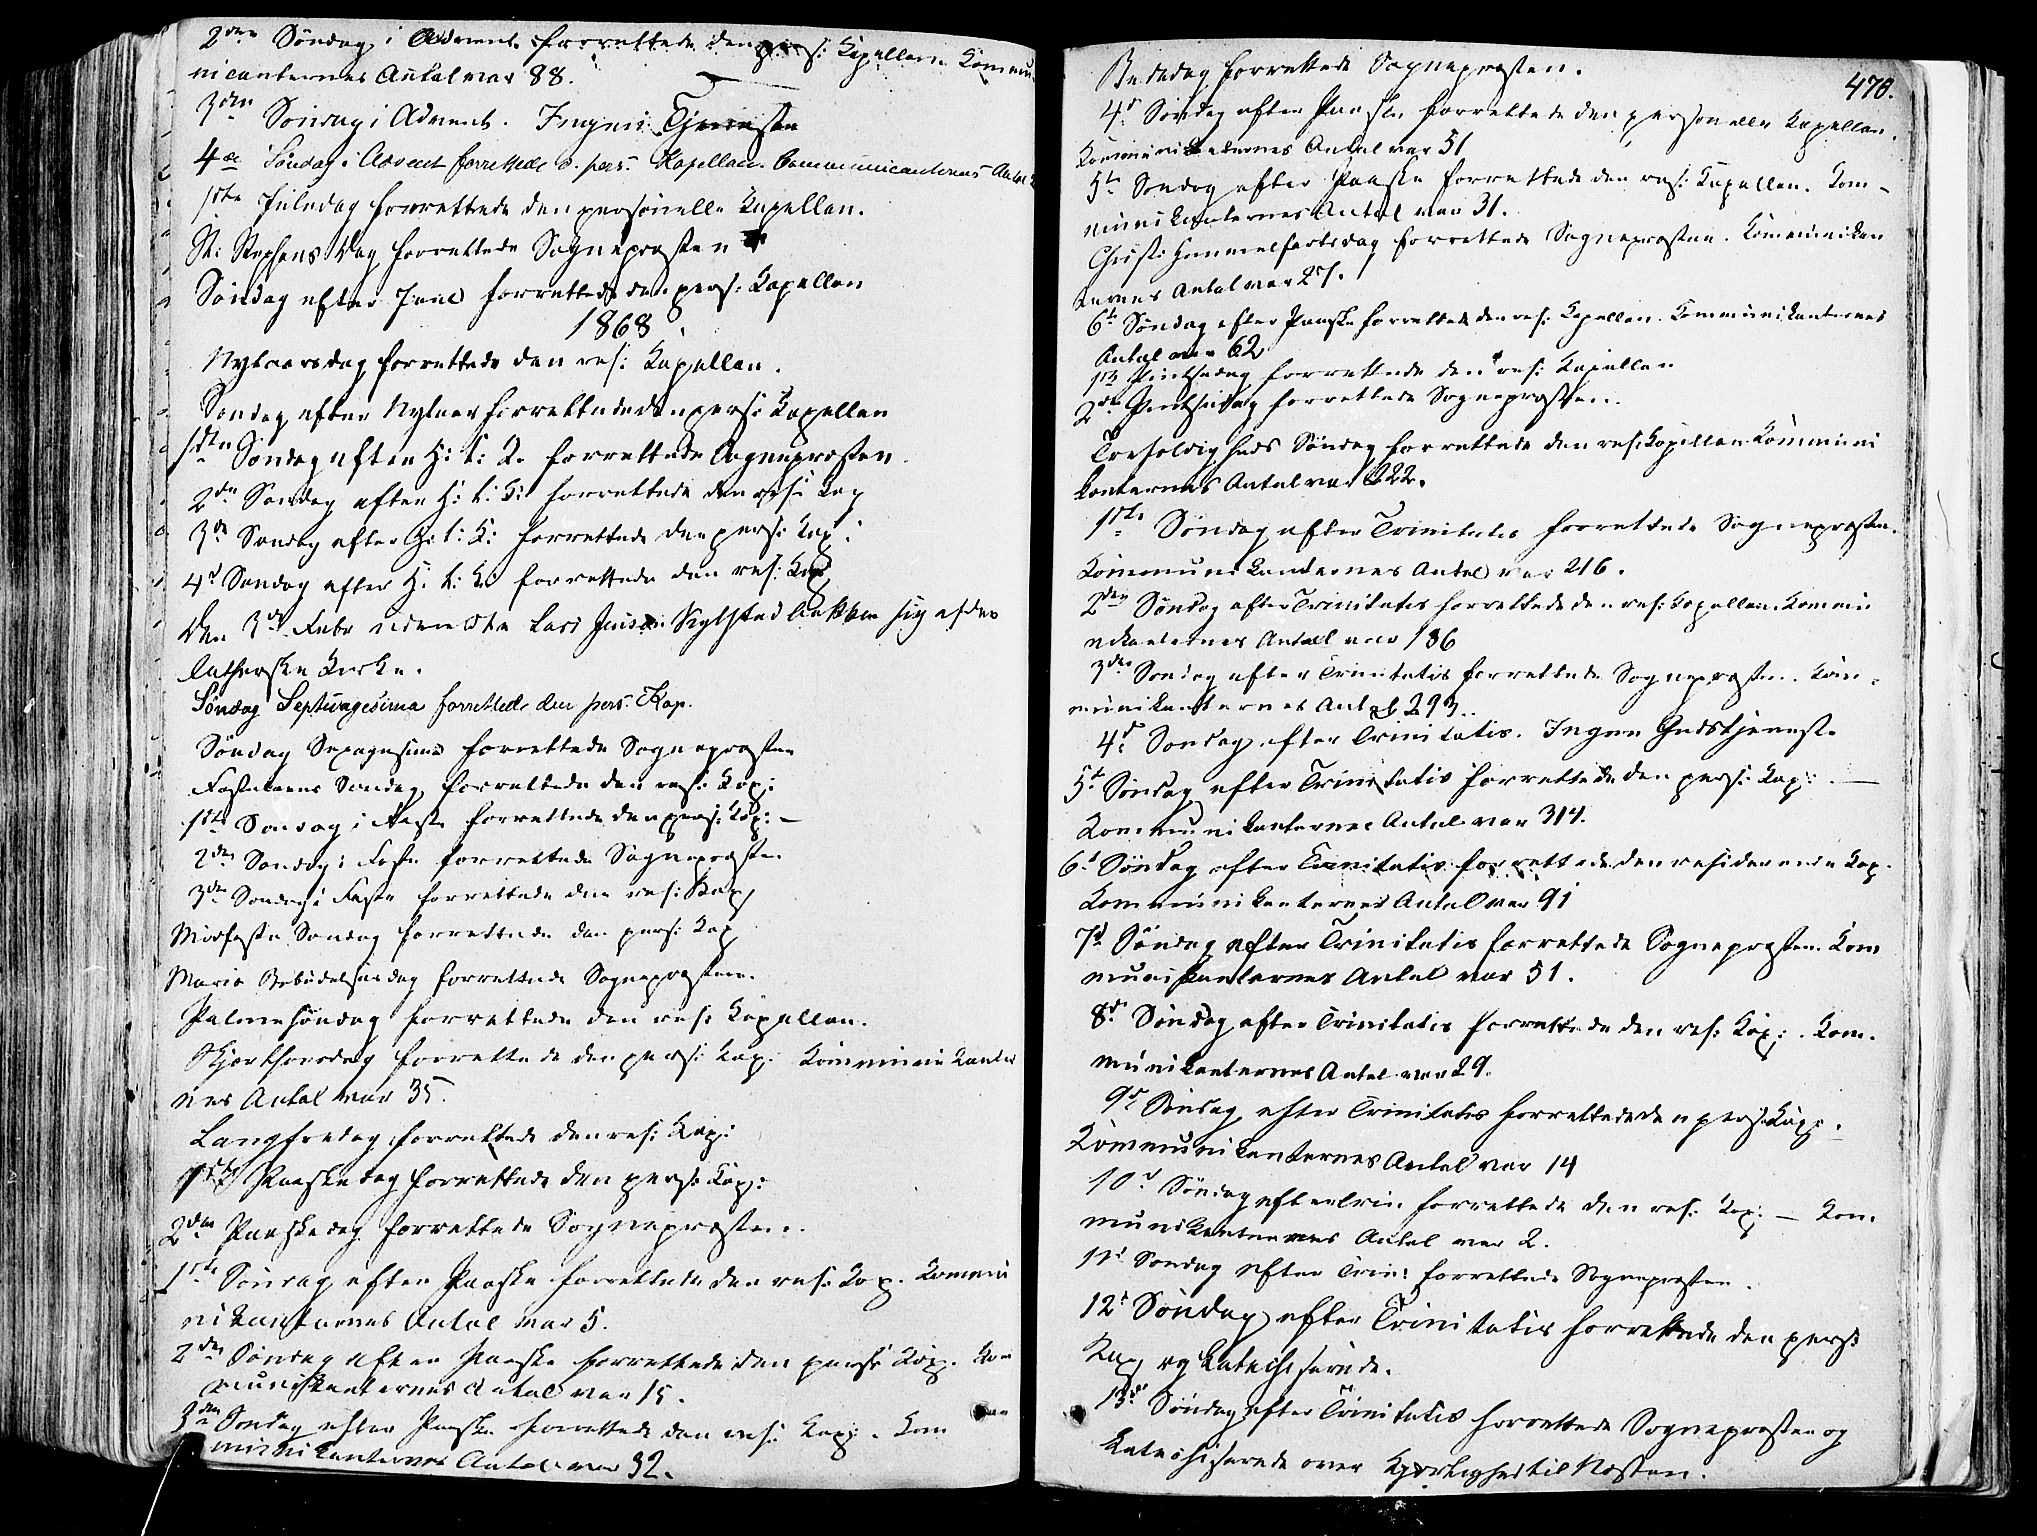 2den Søndag i Advent forrettede den pers: Kapellan. Kommu
nicanternes Antal var 88.
3den Søndag i Advent. Ingen Tjeneste
4de Søndag i Advent forrettede d. pers. Kapellan. Communicanternes Antal
1ste Juledag forrettede den personelle Kapellan.
St: Stephens Dag forrettede Sognepræsten
Søndag efter Juul forrettede den pers: Kapellan
1868.
Nytaarsdag forrettede den res: Kapellan.
Søndag efter Nytaar forrettede den pers: Kapellan
1ste Søndag efter H: t: K. forrettede Sognepræsten.
2den Søndag efter H: t: K: forrettede den res: Kap
3de Søndag efter H: t: K: forrettede den pers: Kap:
4d Søndag efter H. t: K: forrettede den res: Kap
Den 3die Febr udmeldte Lars Jensen sig af den
lutherske Kirke.
Søndag Septuagesima forrettede den pers. Kap.
Søndag Sexagesima forrettede Sognepræsten
Fastelavns Søndag forrettede den res: Kap:
1ste Søndag i Faste forrettede den pers: Kap: —
2den Søndag i Faste forrettede Sognepræsten
3den Søndag i Faste forrettede den res: Kap
Midfaste Søndag forrettede den pers: Kap
Maria Bebudelsesdag forrettede Sognepræsten.
Palmesøndag forrettede den res: Kapellan.
Skjærthorsdag forrettede den pers: Kap: Kommunikanter
nes Antal var 35.
Langfredag forrettede den res: Kap:
1ste Paaskedag forrettede den pers: Kap:
2den Paaskedag forrettede Sognepræsten.
1ste Søndag efter Paaske forrettede den res: Kap. Kommu
nikanternes Antal var 5.
2den Søndag efter Paaske forrettede den pers: Kap. Kom
munikanternes Antal var 15.
3den Søndag efter Paaske forrettede den res: Kap: . Kom
munikanternes Antal var 32.
470.
Bededag forrettede Sognepræsten.
4d Søndag efter Paaske forrettede den personelle Kapellan.
Kommunikanternes Antal var 51
5te Søndag efter Paaske forrettede den res: Kapellan. Kom-
munikanternes Antal var 31.
Christi Himmelfartsdag forrettede Sognepræsten. Kommunikan
ternes Antal var 27.
6te Søndag efter Paaske forrettede den res: Kapellan. Kommunikanternes
Antal var 62
1ste Pintsedag forrettede den res: Kapellan
2den Pintsedag forrettede Sognepræsten.
Trefoldigheds Søndag forrettede den res: Kapellan Kommuni
kanternes Antal var 222.
1ste Søndag efter Trinitatis forrettede Sognepræsten.
Kommunikanternes Antal var 216.
2den Søndag efter Trinitatis forrettede den res: Kapellan. Kommu
nikanternes Antal var 186
3den Søndag efter Trinitatis forrettede Sognepræsten. Kom-
munikanternes Antal 293.
4d Søndag efter Trinitatis. Ingen Gudstjeneste
5t Søndag efter Trinitatis forrettede den pers: Kap: —
Kommunikanternes Antal var 314.
6t Søndag efter Trinitatis forrettede den residerende Kap.
Kommunikanternes Antal var 91
7d Søndag efter Trinitatis forrettede Sognepræsten. Kom
munikanternes Antal var 51.
8d Søndag efter Trinitatis forrettede den res: Kap: . Kom.
munikanternes Antal var 29.
9d Søndag efter Trinitatis forrettede den pers: Kap: .
Kommunikanternes Antal var 14
10d Søndag efter Trin forrettede den res: Kap: — Kom.
munikanternes Antal var 2.
11t Søndag efter Trin: forrettede Sognepræsten.
12t Søndag efter Trinitatis forrettede den pers:
Kap og katechiserede.
13de Søndag efter Trinitatis forrettede Sognepræsten og
katechiserede over Kjærlighed til Næsten.